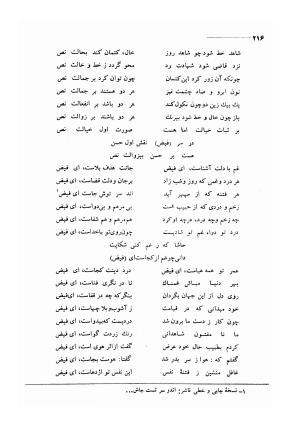 ۲۱۶
شاهد خط شود چو شاهد روز	خال، کتمان کند بحالت نص
نزد قاضی شود شهادت رد	محو گردد ز خط و خالت نص
چونکه آن زور کرد این کتمان	چون توان کرد بر جمالت نص
نون ابرو و صاد چشمت نیز	هر دو هستند بر جمالت نص
یك بیك زین دو چون نکول کند	هر دو باشد بر انفعالت نص
باز چون خال و خط شود بیرنك	هر دو باشند بر زوالت نص
بر ثبات خیالت اما هست	صورت اول خیالت نص
در سر (فیض) نقش اول حسن
هست بر حسن بیزوالت نص
غم با دلت آشناست، ای فیض	جانت هدف بلاست، ای فیض
هر درد و غمی که روز و شب زاد	بر جان و دلت قضاست، ای فیض
هر فتنه که از سپهر آید	اند سر توش جاست ای فیض۱
هر زخم که از حبیب است	بی مرهم و بی دواست، ای فیض
چه زخم و چه درد، هرچه او کرد	هم مرهم و هم شفاست، ای فیض
درد تو دوا، غم تو شادیست	چون روی تو باخداست، ای فیض
حاشا که ز غم کنی شکایت
دانی چو غم از کجاست ای (فیض)
عمر تو همه هباست، ای فیض	درد دینت کجاست، ای فیض
بهر دنیا مباش غمناك	تا در نگری فناست، ای فیض
روی دل از این جهان بگردان	بنگر که چه در قفاست، ای فیض
خود میدانی که در قیامت	ز آشوب و بلا چهاست، ای فیض
چون کار ز دست ما برون شد	در دیست که بیدواست، ای فیض
خود را بخدا سپار و خوش باش	رنك زردت گواست، ای فیض
کردم بطبیب حال خود عرض	گفت از اثر هوی است، ای فیض
گفتم که : هوا ز سر بدر شد	گفتا: هوست بجاست، ای فیض
غافل منشین ز فتنهٔ نفس	این نفس تو اژدهاست، ای فیض
۱- نسخهٔ چاپی و خطی ناشر: اندو سر تست جاش...